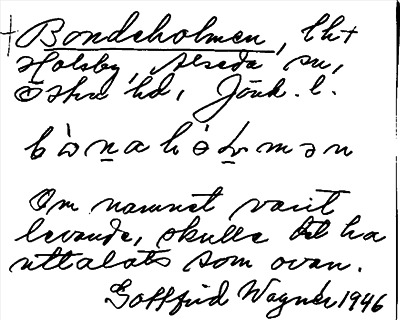 † Bondeholmen, lht
Holsby, Alseda sn,
Östra hd, Jönk. l.
bònahòlmən
Om namnet varit
levande, skulle det ha
uttalats som ovan.
Gottfrid Wagnér 1946